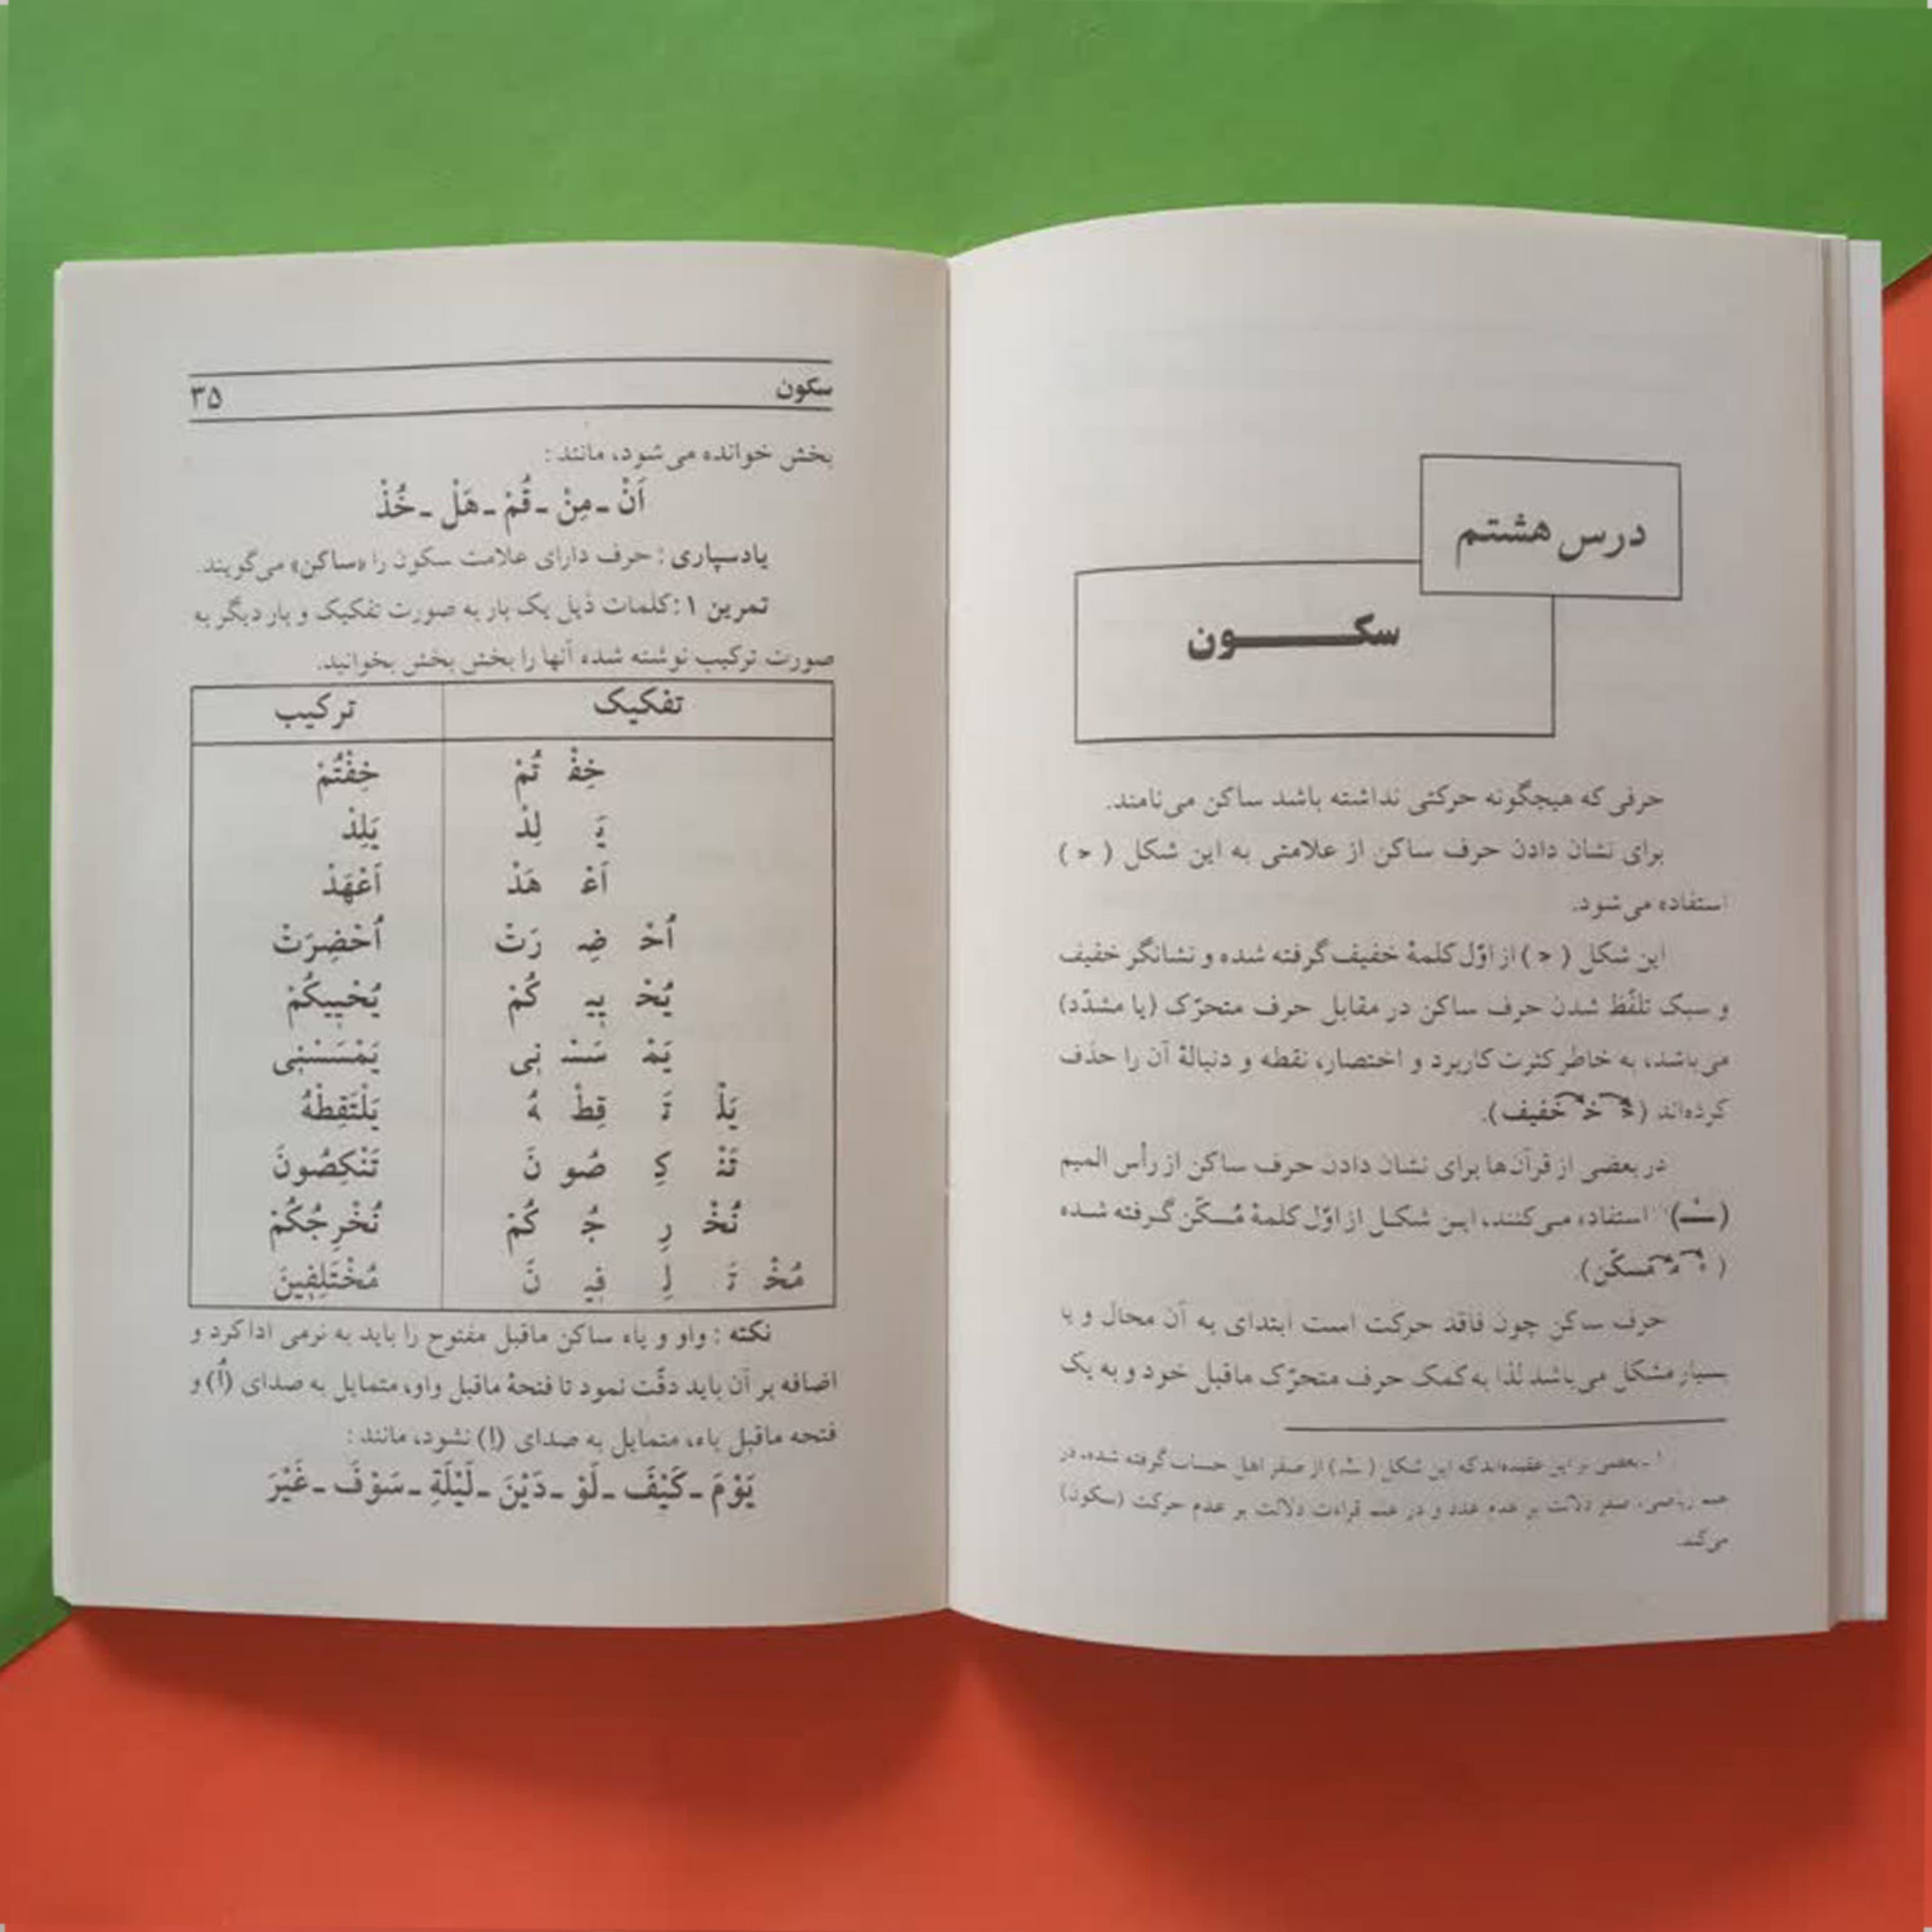 درس هشتم
سکـــــــون
حرفی که هیچگونه حرکتی نداشته باشد ساکن می‌نامند.
برای نشان دادن حرف ساکن از علامتی به این شکل ( )
استفاده می‌شود.
این شکل ( ) از اوّل کلمهٔ خفیف گرفته شده و نشانگر خفیف
و سبک تلفّظ شدن حرف ساکن در مقابل حرف متحرّک (یا مشدّد)
می‌باشد، به خاطر کثرت کاربرد و اختصار، نقطه و دنبالهٔ آن را حذف
کرده‌اند ( خـ خفیف).
در بعضی از قرآن‌ها برای نشان دادن حرف ساکن از رأس المیم
(ـْـ) استفاده می‌کنند، این شکل از اوّل کلمهٔ مُسکّن گرفته شده
( مـ مسکّن).
حرف ساکن چون فاقد حرکت است ابتدای به آن محال و یا
بسیار مشکل می‌باشد لذا به کمک حرف متحرّک ماقبل خود و به یک
۱ ـ بعضی بر این عقیده‌اند که این شکل (ـْـ) از صفر اهل حساب گرفته شده، در
علم ریاضی، صفر دلالت بر عدم عدد و در علم قراءت دلالت بر عدم حرکت (سکون)
می‌کند.
سکون ۳۵
بخش خوانده می‌شود، مانند:
اَنْ ـ مِنْ ـ قُمْ ـ هَلْ ـ خُذْ
یادسپاری : حرف دارای علامت سکون را «ساکن» می‌گویند.
تمرین ۱: کلمات ذیل یک بار به صورت تفکیک و بار دیگر به
صورت ترکیب نوشته شده آنها را بخش بخش بخوانید.
تفکیک ترکیب
خِفْ تُمْ خِفْتُمْ
یَـ لِدْ یَلِدْ
اَعْـ هَدْ اَعْهَدْ
اُحْـ ضِـ رَتْ اُحْضِرَتْ
یُحْـ یِیـ کُمْ یُحْیِیکُمْ
یَمْـ سَسْـ نِی یَمْسَسْنِی
یَلْـ تَـ قِطْـ هُ یَلْتَقِطْهُ
تَنْـ کِـ صُو نَ تَنْکِصُونَ
نُخْـ رِ جُـ کُمْ نُخْرِجُکُمْ
مُخْـ تَـ لِـ فِیـ نَ مُخْتَلِفِینَ
نکته : واو و یاء ساکن ماقبل مفتوح را باید به نرمی ادا کرد و
اضافه بر آن باید دقّت نمود تا فتحهٔ ماقبل واو، متمایل به صدای (اُ) و
فتحه ماقبل یاء، متمایل به صدای (اِ) نشود، مانند :
یَوْمَ ـ کَیْفَ ـ لَوْ ـ دَیْنَ ـ لَیْلَةِ ـ سَوْفَ ـ غَیْرَ